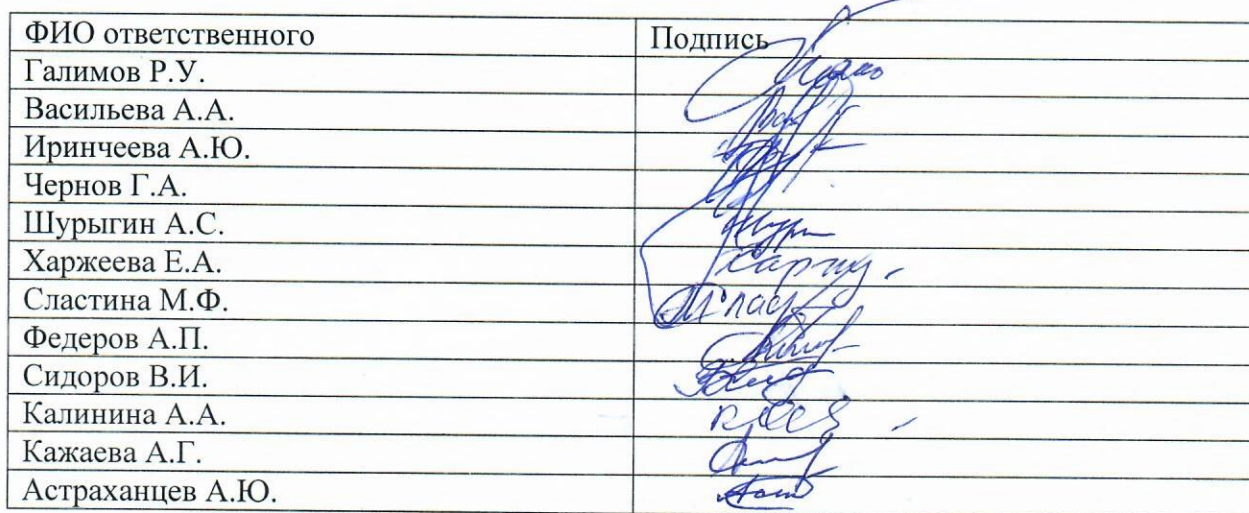 ФИО ответственного Подпись
Галимов Р.У.
Васильева А.А.
Иринчеева А.Ю.
Чернов Г.А.
Шурыгин А.С.
Харжеева Е.А.
Сластина М.Ф.
Федеров А.П.
Сидоров В.И.
Калинина А.А.
Кажаева А.Г.
Астраханцев А.Ю.